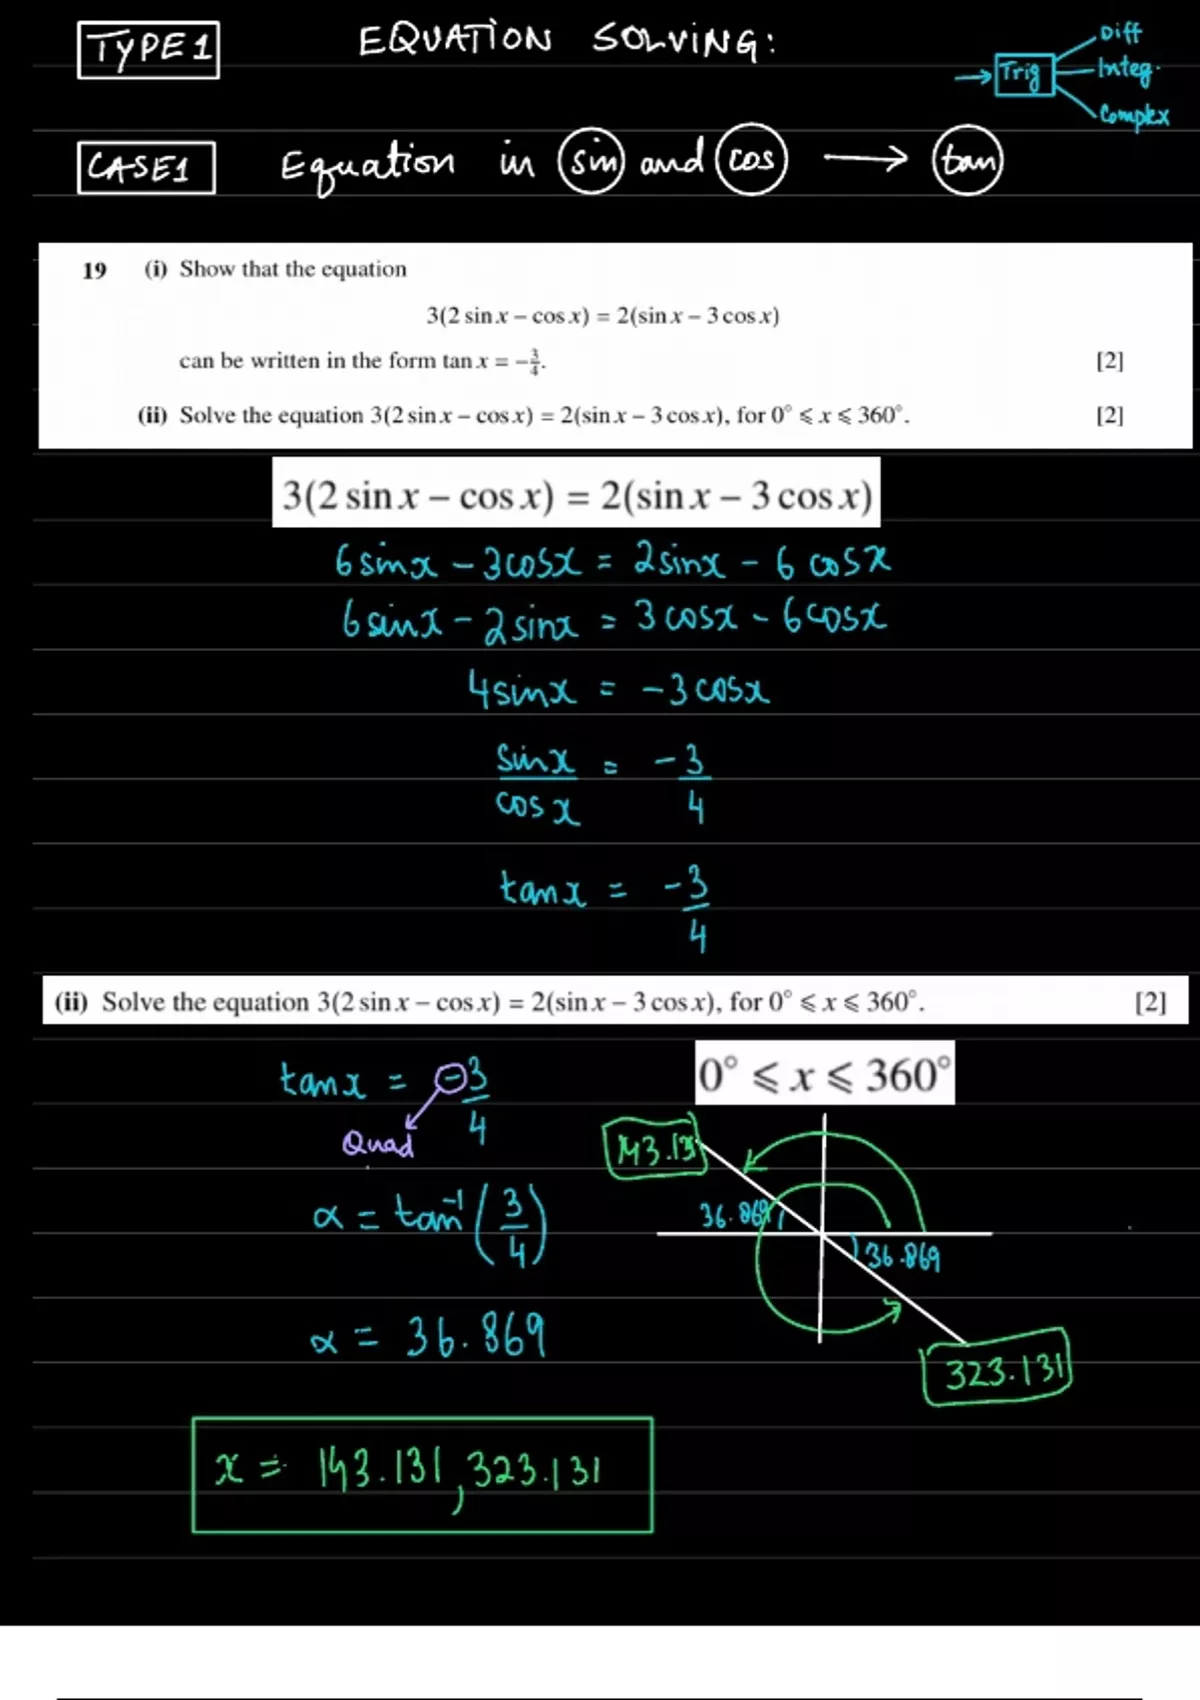 TYPE 1 EQUATION SOLVING:
→ Trig
Diff
Integ.
Complex
CASE 1 Equation in sin and cos → tan
19 (i) Show that the equation
3(2 sin x − cos x) = 2(sin x − 3 cos x)
can be written in the form tan x = −3/4. [2]
(ii) Solve the equation 3(2 sin x − cos x) = 2(sin x − 3 cos x), for 0° ⩽ x ⩽ 360°. [2]
3(2 sin x − cos x) = 2(sin x − 3 cos x)
6 sinx − 3cosx = 2sinx − 6 cosx
6 sinx − 2 sinx = 3 cosx − 6cosx
4sinx = −3cosx
sinx/cosx = −3/4
tanx = −3/4
(ii) Solve the equation 3(2 sin x − cos x) = 2(sin x − 3 cos x), for 0° ⩽ x ⩽ 360°. [2]
0° ⩽ x ⩽ 360°
tanx = −3/4
Quad
α = tan⁻¹(3/4)
α = 36.869
143.131
36.869
36.869
323.131
x = 143.131, 323.131